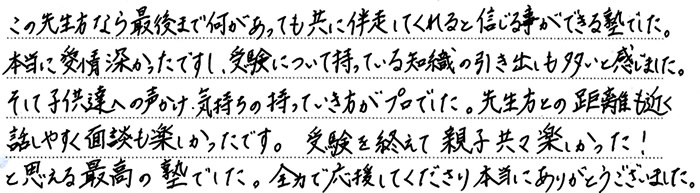 この先生方なら最後まで何があっても共に伴走してくれると信じる事ができる塾でした。
本当に愛情深かったですし、受験について持っている知識の引き出しも多いと感じました。
そして子供達への声かけ、気持ちの持っていき方がプロでした。先生方との距離も近く
話しやすく面談も楽しかったです。 受験を終えて親子共々楽しかった！
と思える最高の塾でした。全力で応援してくださり本当にありがとうございました。